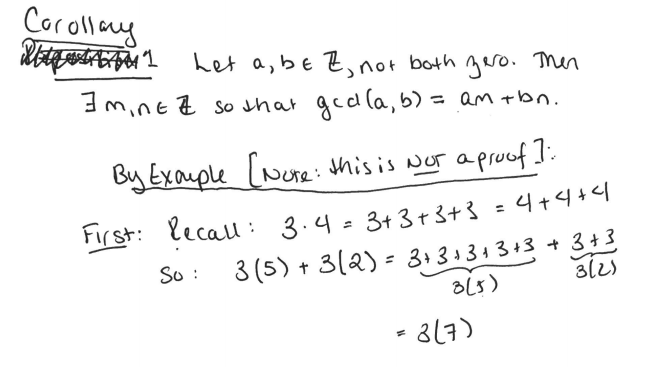 Corollary
1 Let a, b ∈ ℤ, not both zero. Then
∃ m, n ∈ ℤ so that gcd(a, b) = am + bn.
By Example [Note: this is NOT a proof]:
First: Recall: 3·4 = 3+3+3+3 = 4+4+4
So: 3(5) + 3(2) = 3+3+3+3+3 + 3+3
3(5) 3(2)
= 3(7)